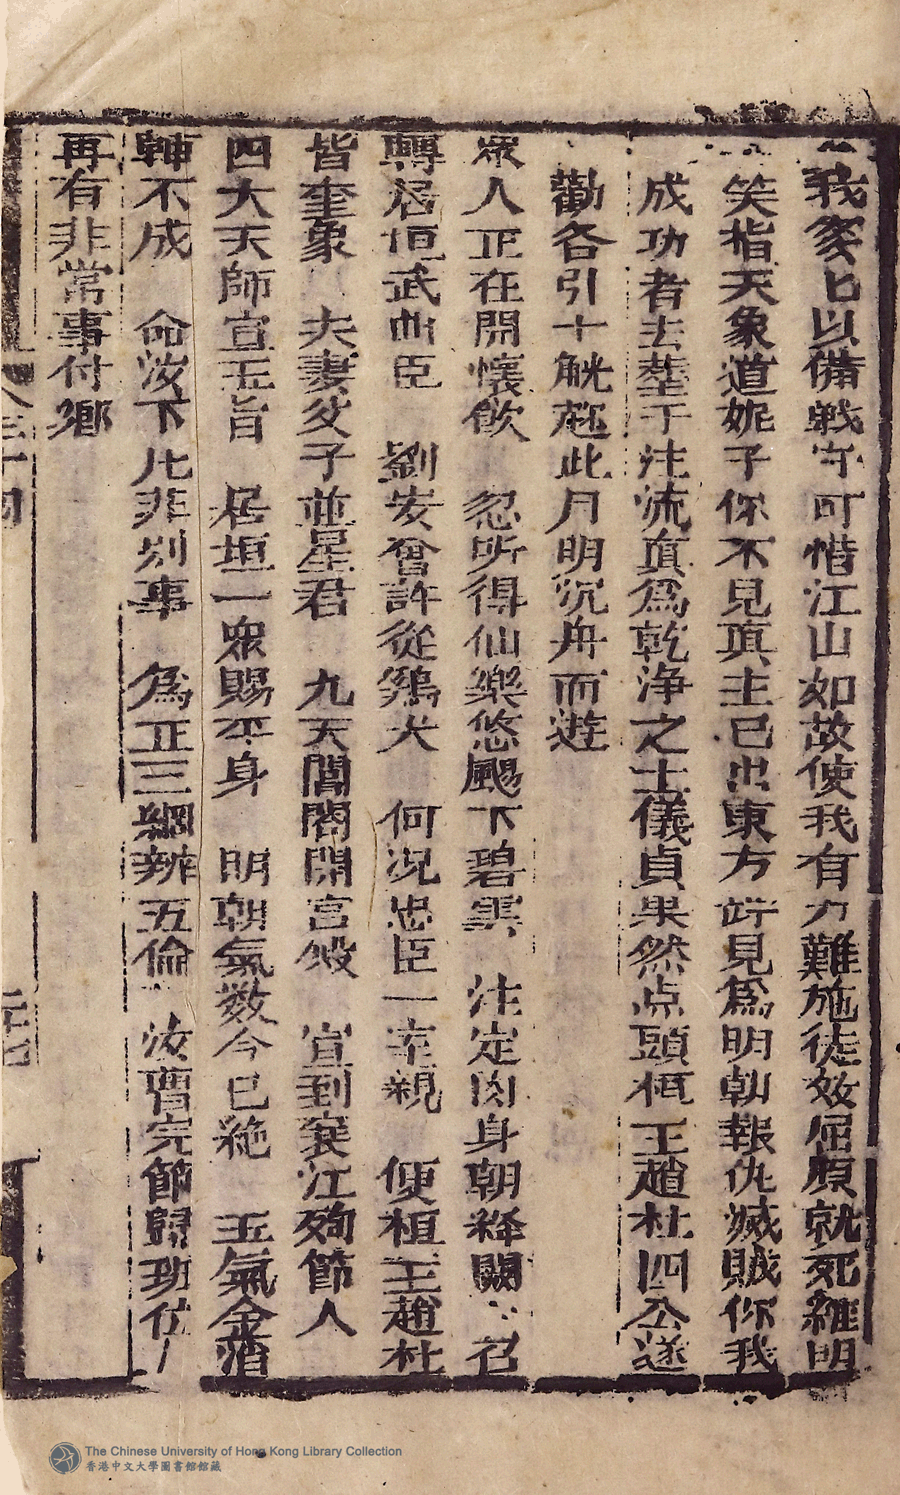 我家〻以備戰守可惜江山如故使我有力難施徒效屈原就死雖明
笑指天象道妮子你不見真主已出東方許見爲明朝報仇滅賊你我
成功者去塟于注流真爲乾淨之士儀貞果然点頭桓王趙杜四公遂
勸各引十觥趂此月明沉舟而遊
眾人正在開懷飲 忽听得仙樂悠颺下碧雲 注定肉身朝絳闕〻召
轉居垣武曲臣 劉安曾許從鷄犬 何况忠臣一宰親 便桓王趙杜
皆奎象 夫妻父子並星君 九天閶闔開宫殿 宣到襄江殉節人
四大天師宣玉旨 居垣一眾賜平身 明朝氣数今已絶 五氣金酒
軸不成 命汝下此非别事 爲正三綱辨五倫 汝曹完節歸班位
再有非常事付鄉
卷三十四
The Chinese University of Hong Kong Library Collection
香港中文大學圖書館館藏